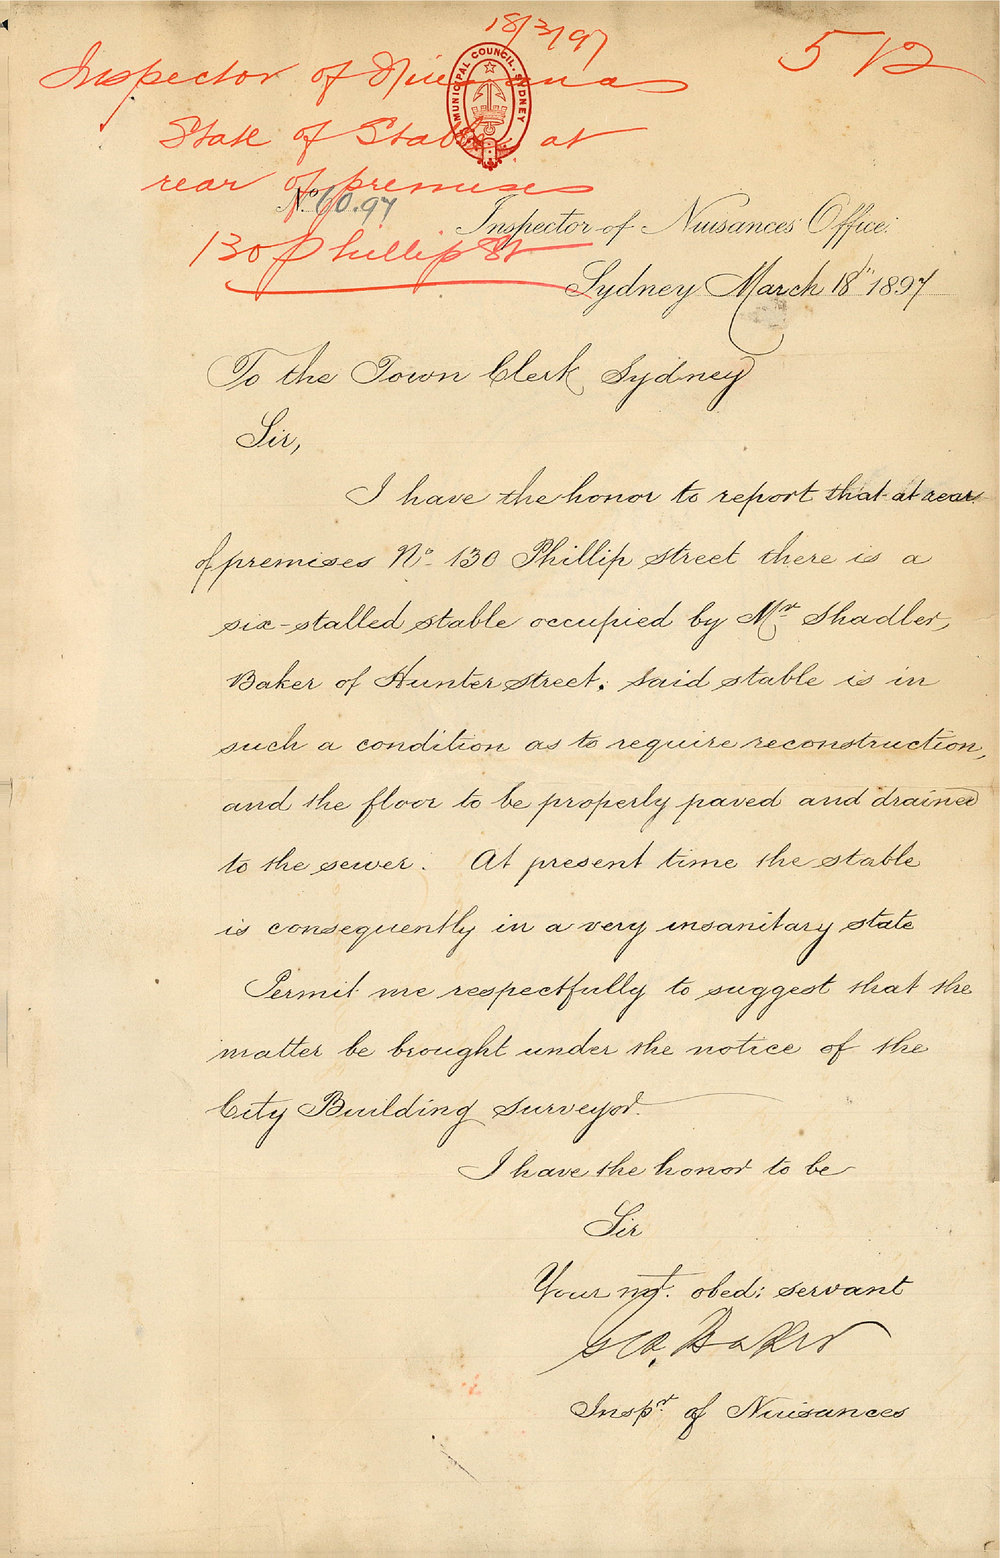 18/3/97
512
Inspector of Nuisances
State of Stables at
rear of premises
130 Phillip St
MUNICIPAL COUNCIL. SYDNEY
No. 60.97
Inspector of Nuisances Office:
Sydney March 18" 1897
To the Town Clerk Sydney
Sir,
I have the honor to report that at rear
of premises No. 130 Phillip Street there is a
six-stalled stable occupied by Mr. Shadler,
Baker of Hunter street. Said stable is in
such a condition as to require reconstruction,
and the floor to be properly paved and drained
to the sewer. At present time the stable
is consequently in a very insanitary state
Permit me respectfully to suggest that the
matter be brought under the notice of the
City Building Surveyor.
I have the honor to be
Sir
Your mt. obed: servant
Baker
Inspr. of Nuisances